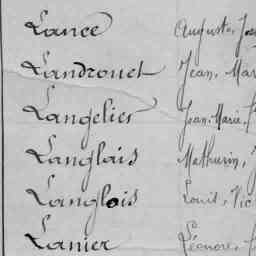 Lance Auguste, Jea
Landrouet Jean, Mar
Langelier Jean-Marie, F
Langlais Mathurin, J
Langlois Louis, Vic
Lanier Léonore, F